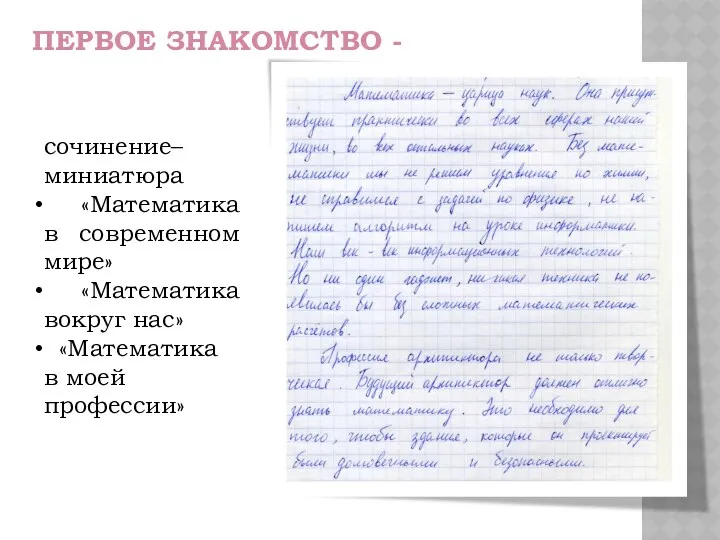 ПЕРВОЕ ЗНАКОМСТВО -
сочинение–
миниатюра
• «Математика
в современном
мире»
• «Математика
вокруг нас»
• «Математика
в моей
профессии»
Математика – царица наук. Она присут-
ствует практически во всех сферах нашей
жизни, во всех остальных науках. Без мате-
матики мы не решим уравнения по химии,
не справимся с задачей по физике, не на-
пишем алгоритм на уроке информатики.
Наш век - век информационных технологий.
Но ни один гаджет, ни-какая техника не по-
явилась бы без сложных математических
расчётов.
Профессия архитектора не только твор-
ческая. Будущий архитектор должен отлично
знать математику. Это необходимо для
того, чтобы здания, которые он проектирует
были долговечными и безопасными.